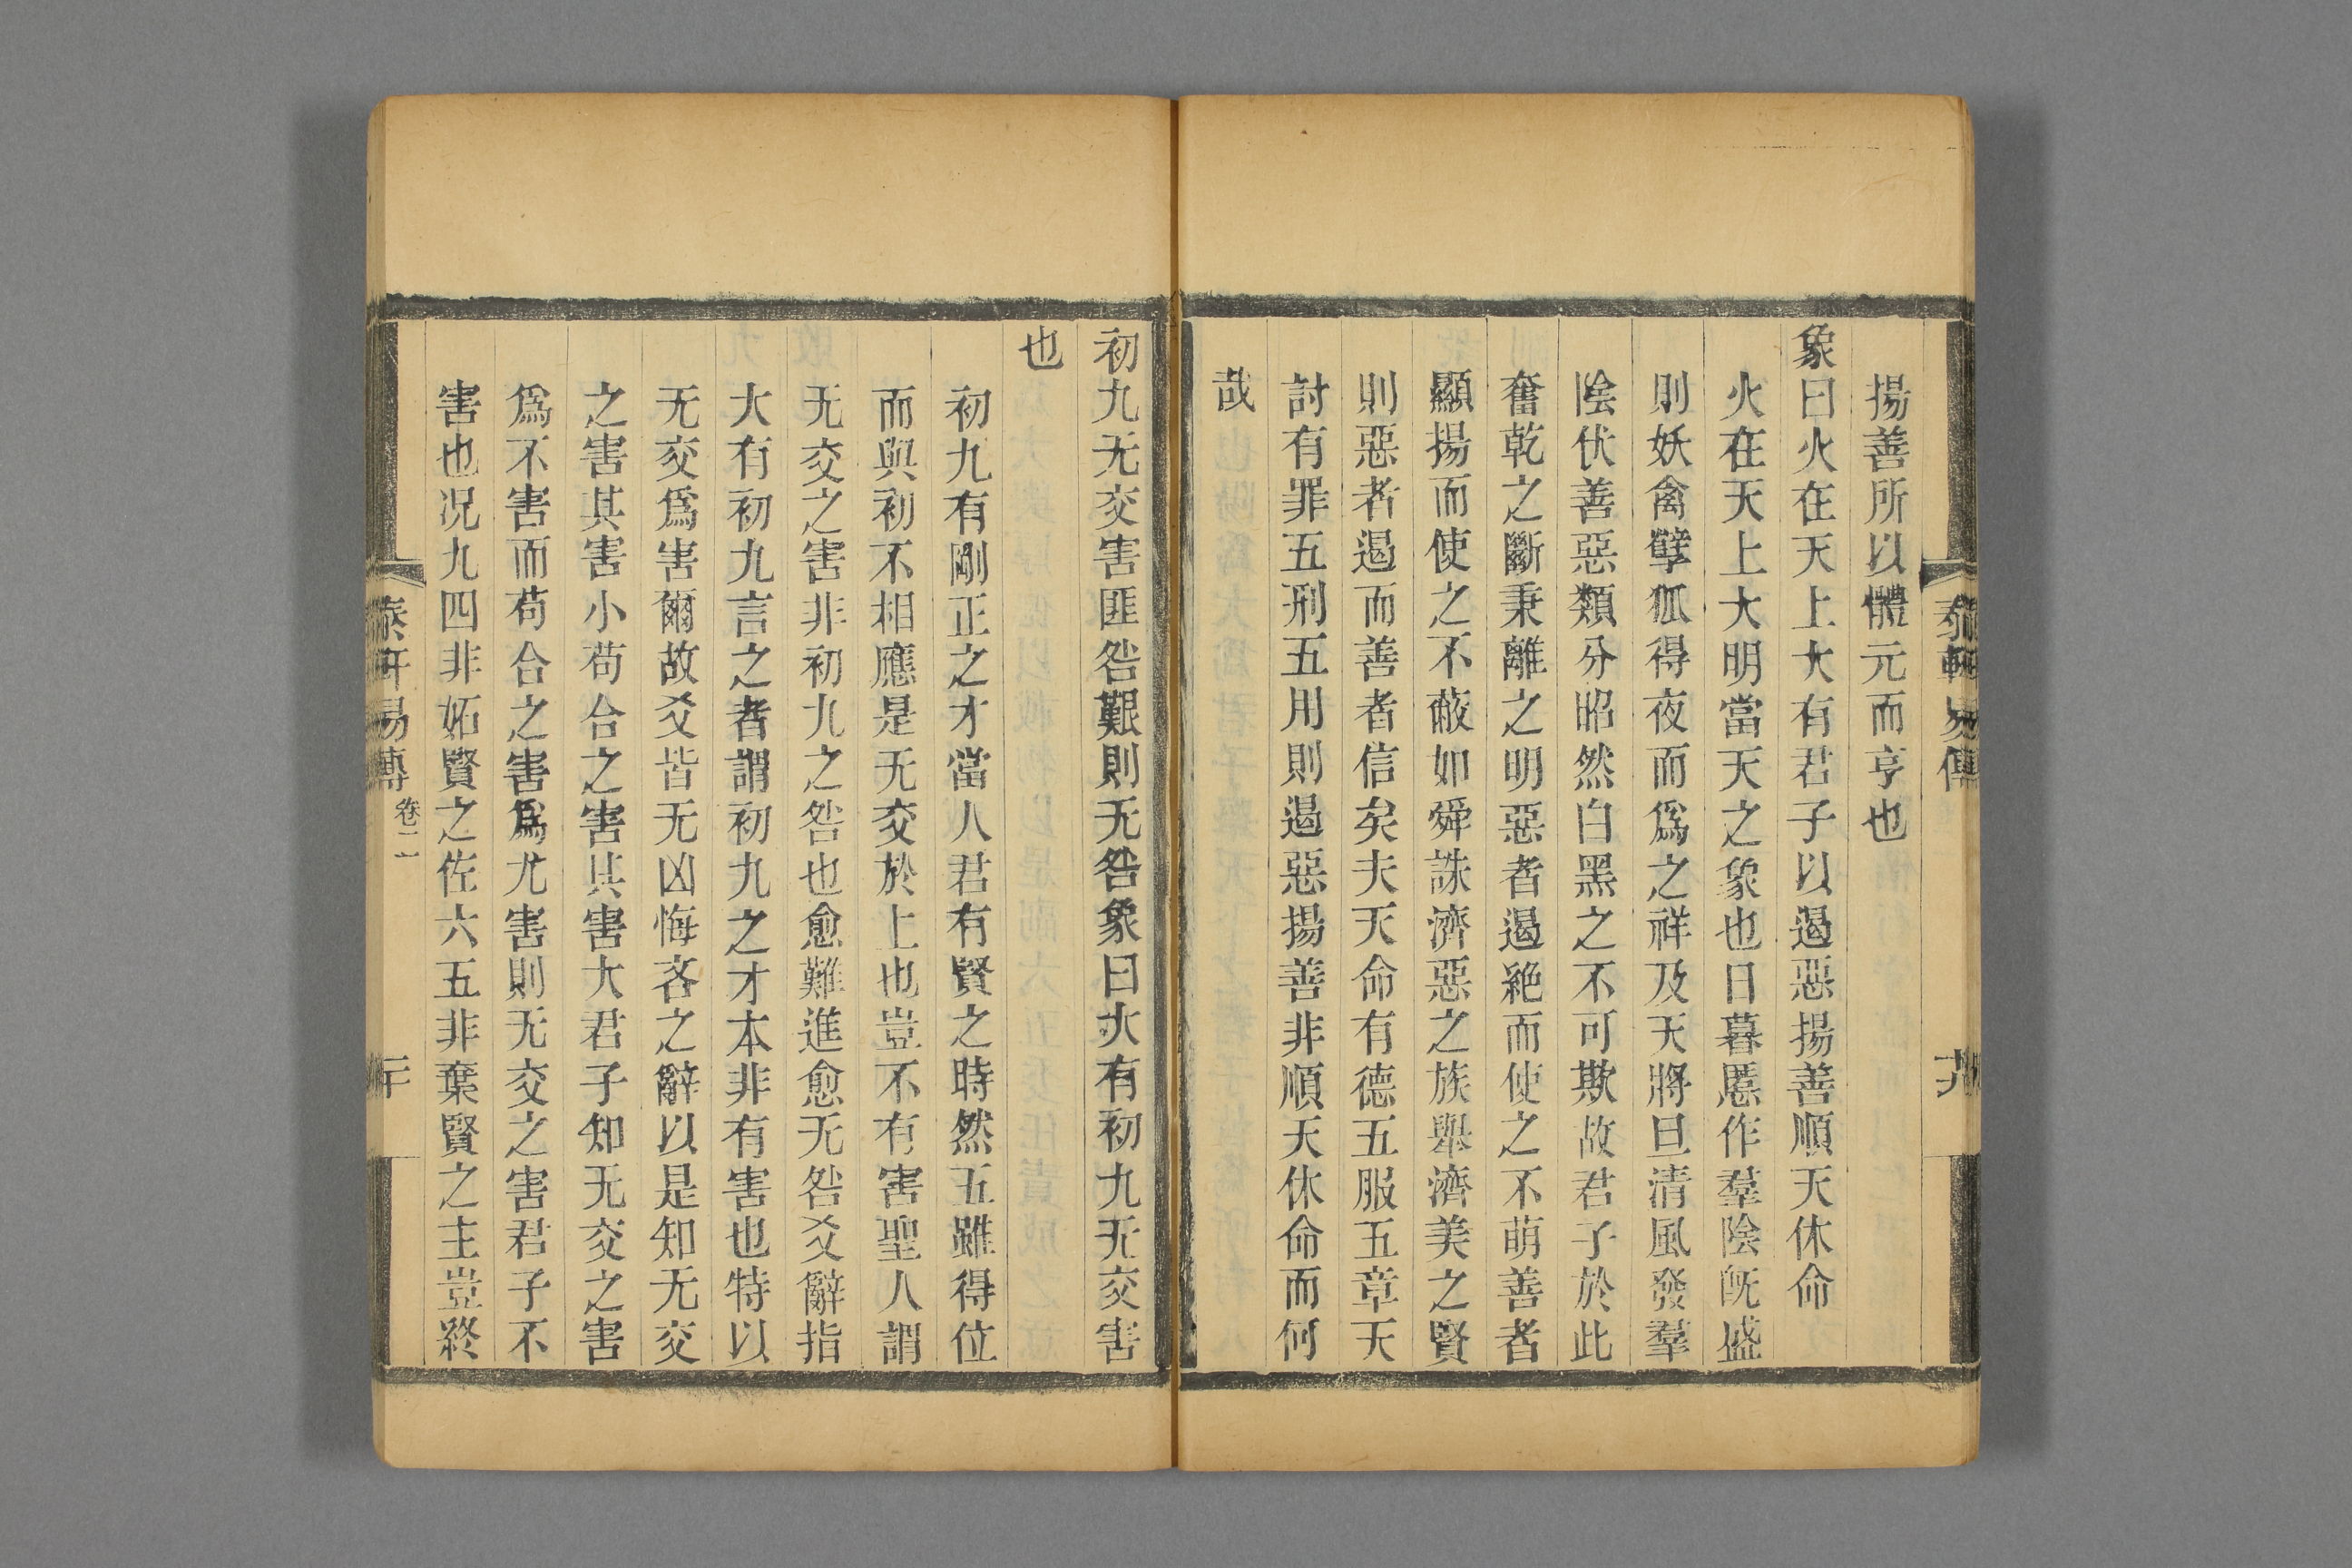 揚善所以體元而亨也
象曰火在天上大有君子以遏惡揚善順天休命
火在天上大明當天之象也日暮慝作羣陰旣盛
則妖禽孽狐得夜而爲之祥及天將旦清風發羣
陰伏善惡類分昭然白黑之不可欺故君子於此
奮乾之斷秉離之明惡者遏絕而使之不萌善者
顯揚而使之不蔽如舜誅濟惡之族舉濟美之賢
則惡者遏而善者信矣夫天命有德五服五章天
討有罪五刑五用則遏惡揚善非順天休命而何
哉
初九无交害匪咎艱則无咎象曰大有初九无交害
也
初九有剛正之才當人君有賢之時然五雖得位
而與初不相應是无交於上也豈不有害聖人謂
无交之害非初九之咎也愈難進愈无咎爻辭指
大有初九言之者謂初九之才本非有害也特以
无交爲害爾故爻皆无凶悔吝之辭以是知无交
之害其害小苟合之害其害大君子知无交之害
爲不害而苟合之害爲尤害則无交之害君子不
害也况九四非妬賢之佐六五非棄賢之主豈終
易傳
卷二